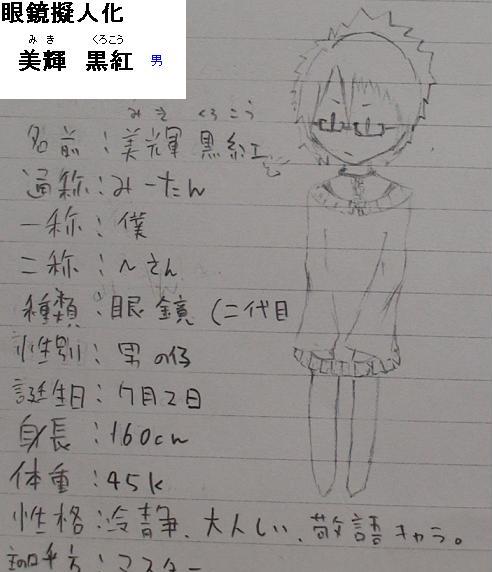 眼鏡擬人化
みき くろこう
美輝 黒紅 男
みき くろこう
名前：美輝 黒紅
通称：みーたん
一称：僕
二称：〜さん
種類：眼鏡（二代目
性別：男の仔
誕生日：7月2日
身長：160cm
体重：45k
性格：冷静、大人しい、敬語キャラ。
呼方：マスター